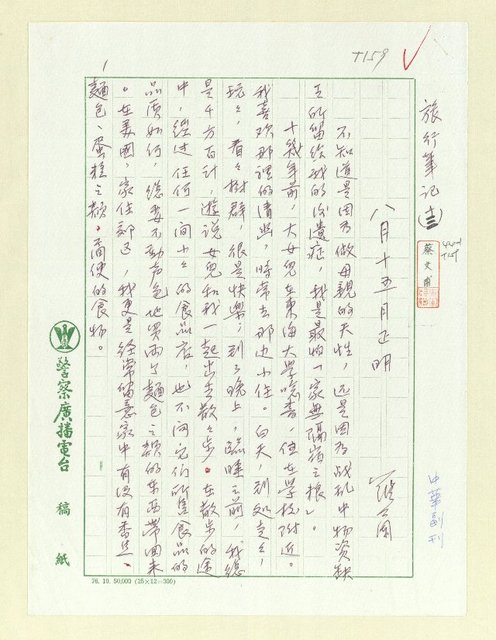 T159
旅行筆記(十三)
蔡文甫
八月十五月正明
羅蘭
中華副刊
不知道是因為做母親的天性，还是因為战乱中物資缺
乏所留給我的後遺症，我是最怕「家無隔宿之糧」。
十幾年前，大女兒在東海大學唸書，住在學校附近。
我喜欢那裡的清幽，時常去那边小住。白天，到処走走，
玩玩，看看樹群，很是快樂；到了晚上，臨睡之前，我總
是千方百計，遊說女兒和我一起出去散散步。在散步的途
中，經过任何一間小小的食品店，也不问它们所售食品的
品质如何，總要不动声色地買两个麵包之類的东西带回来
。在美國，家住郊区，我更是經常留意家中有没有香蕉、
麵包、蛋糕之類。方便的食物。
1
警察廣播電台 稿紙
76. 10. 50,000 (25×12=300)